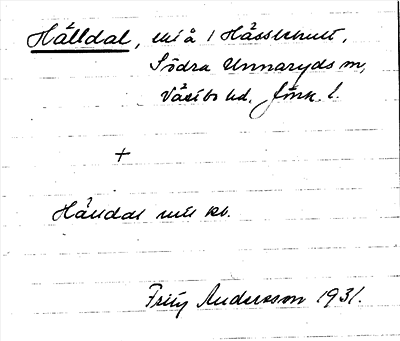 Hälldal, ett å i Hässlehult,
Södra Unnaryds sn,
Västbo hd. Jönk. l.
+
Hälldal
Fritz Andersson 1931.